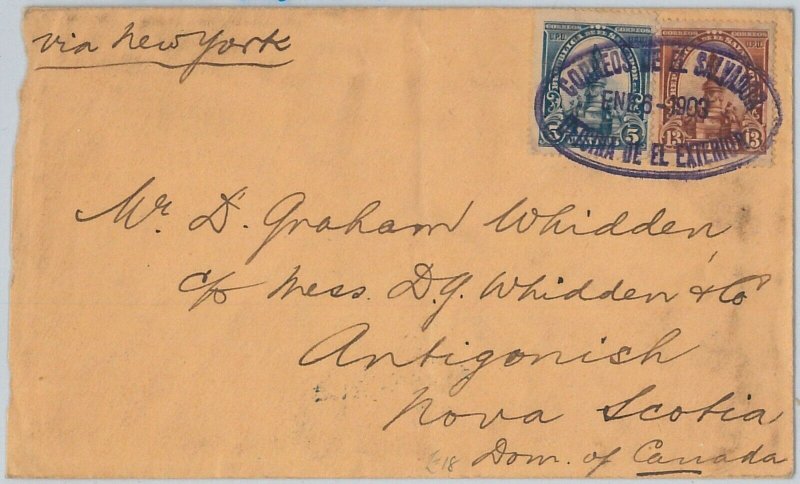 via New York
CORREOS DE EL SALVADOR
ENE 6-1903
OFICINA DE EL EXTERIOR
CORREOS
U.P.U.
5 5
CORREOS
U.P.U.
13 13
Mr. D. Graham Whidden,
c/o Mess. D.G. Whidden & Co
Antigonish
Nova Scotia
Dom. of Canada